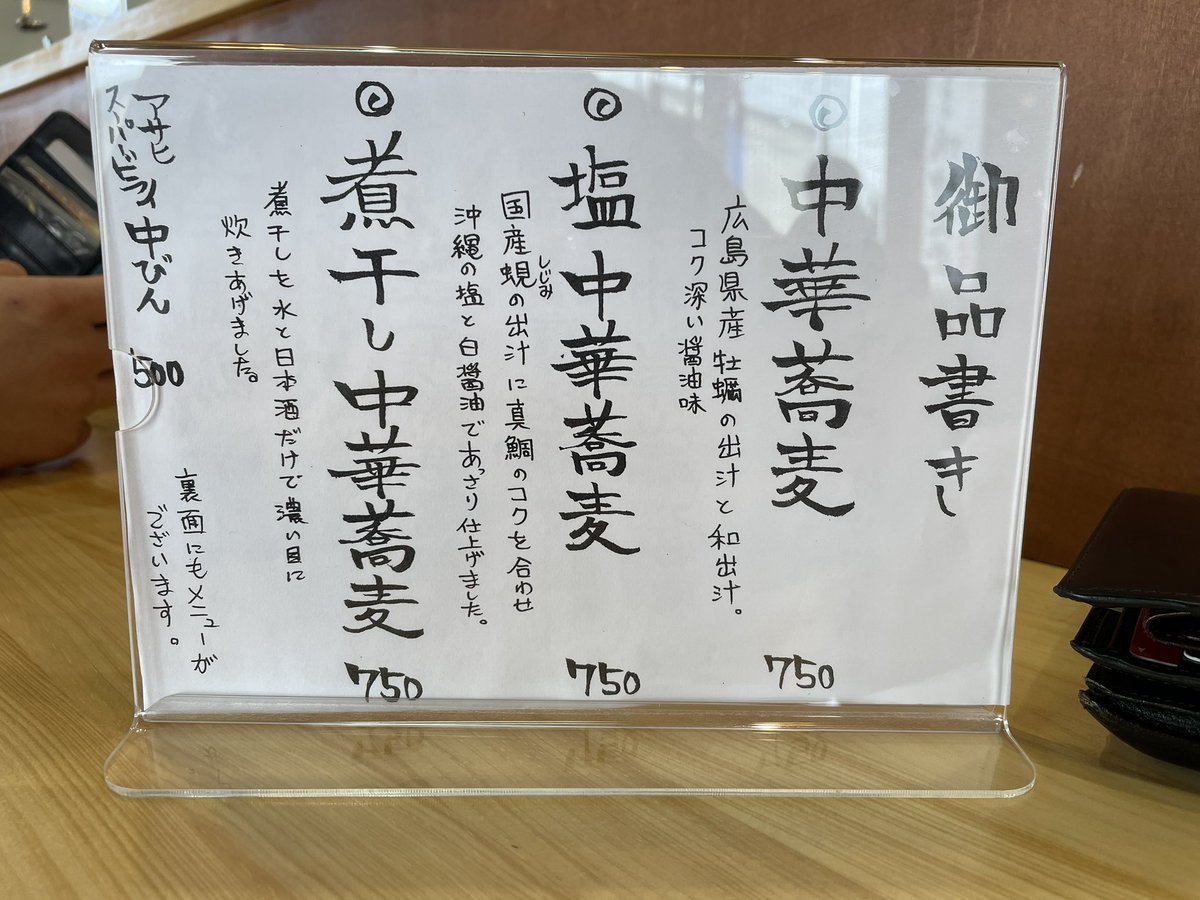 御品書き
◎中華蕎麦 750
広島県産牡蠣の出汁と和出汁。
コク深い醤油味
◎塩中華蕎麦 750
国産蜆の出汁に真鯛のコクを合わせ
しじみ
沖縄の塩と白醤油であっさり仕上げました。
◎煮干し中華蕎麦 750
煮干しを水と日本酒だけで濃い目に
炊きあげました。
裏面にもメニューが
ございます。
アサヒ
スーパードライ中びん 500